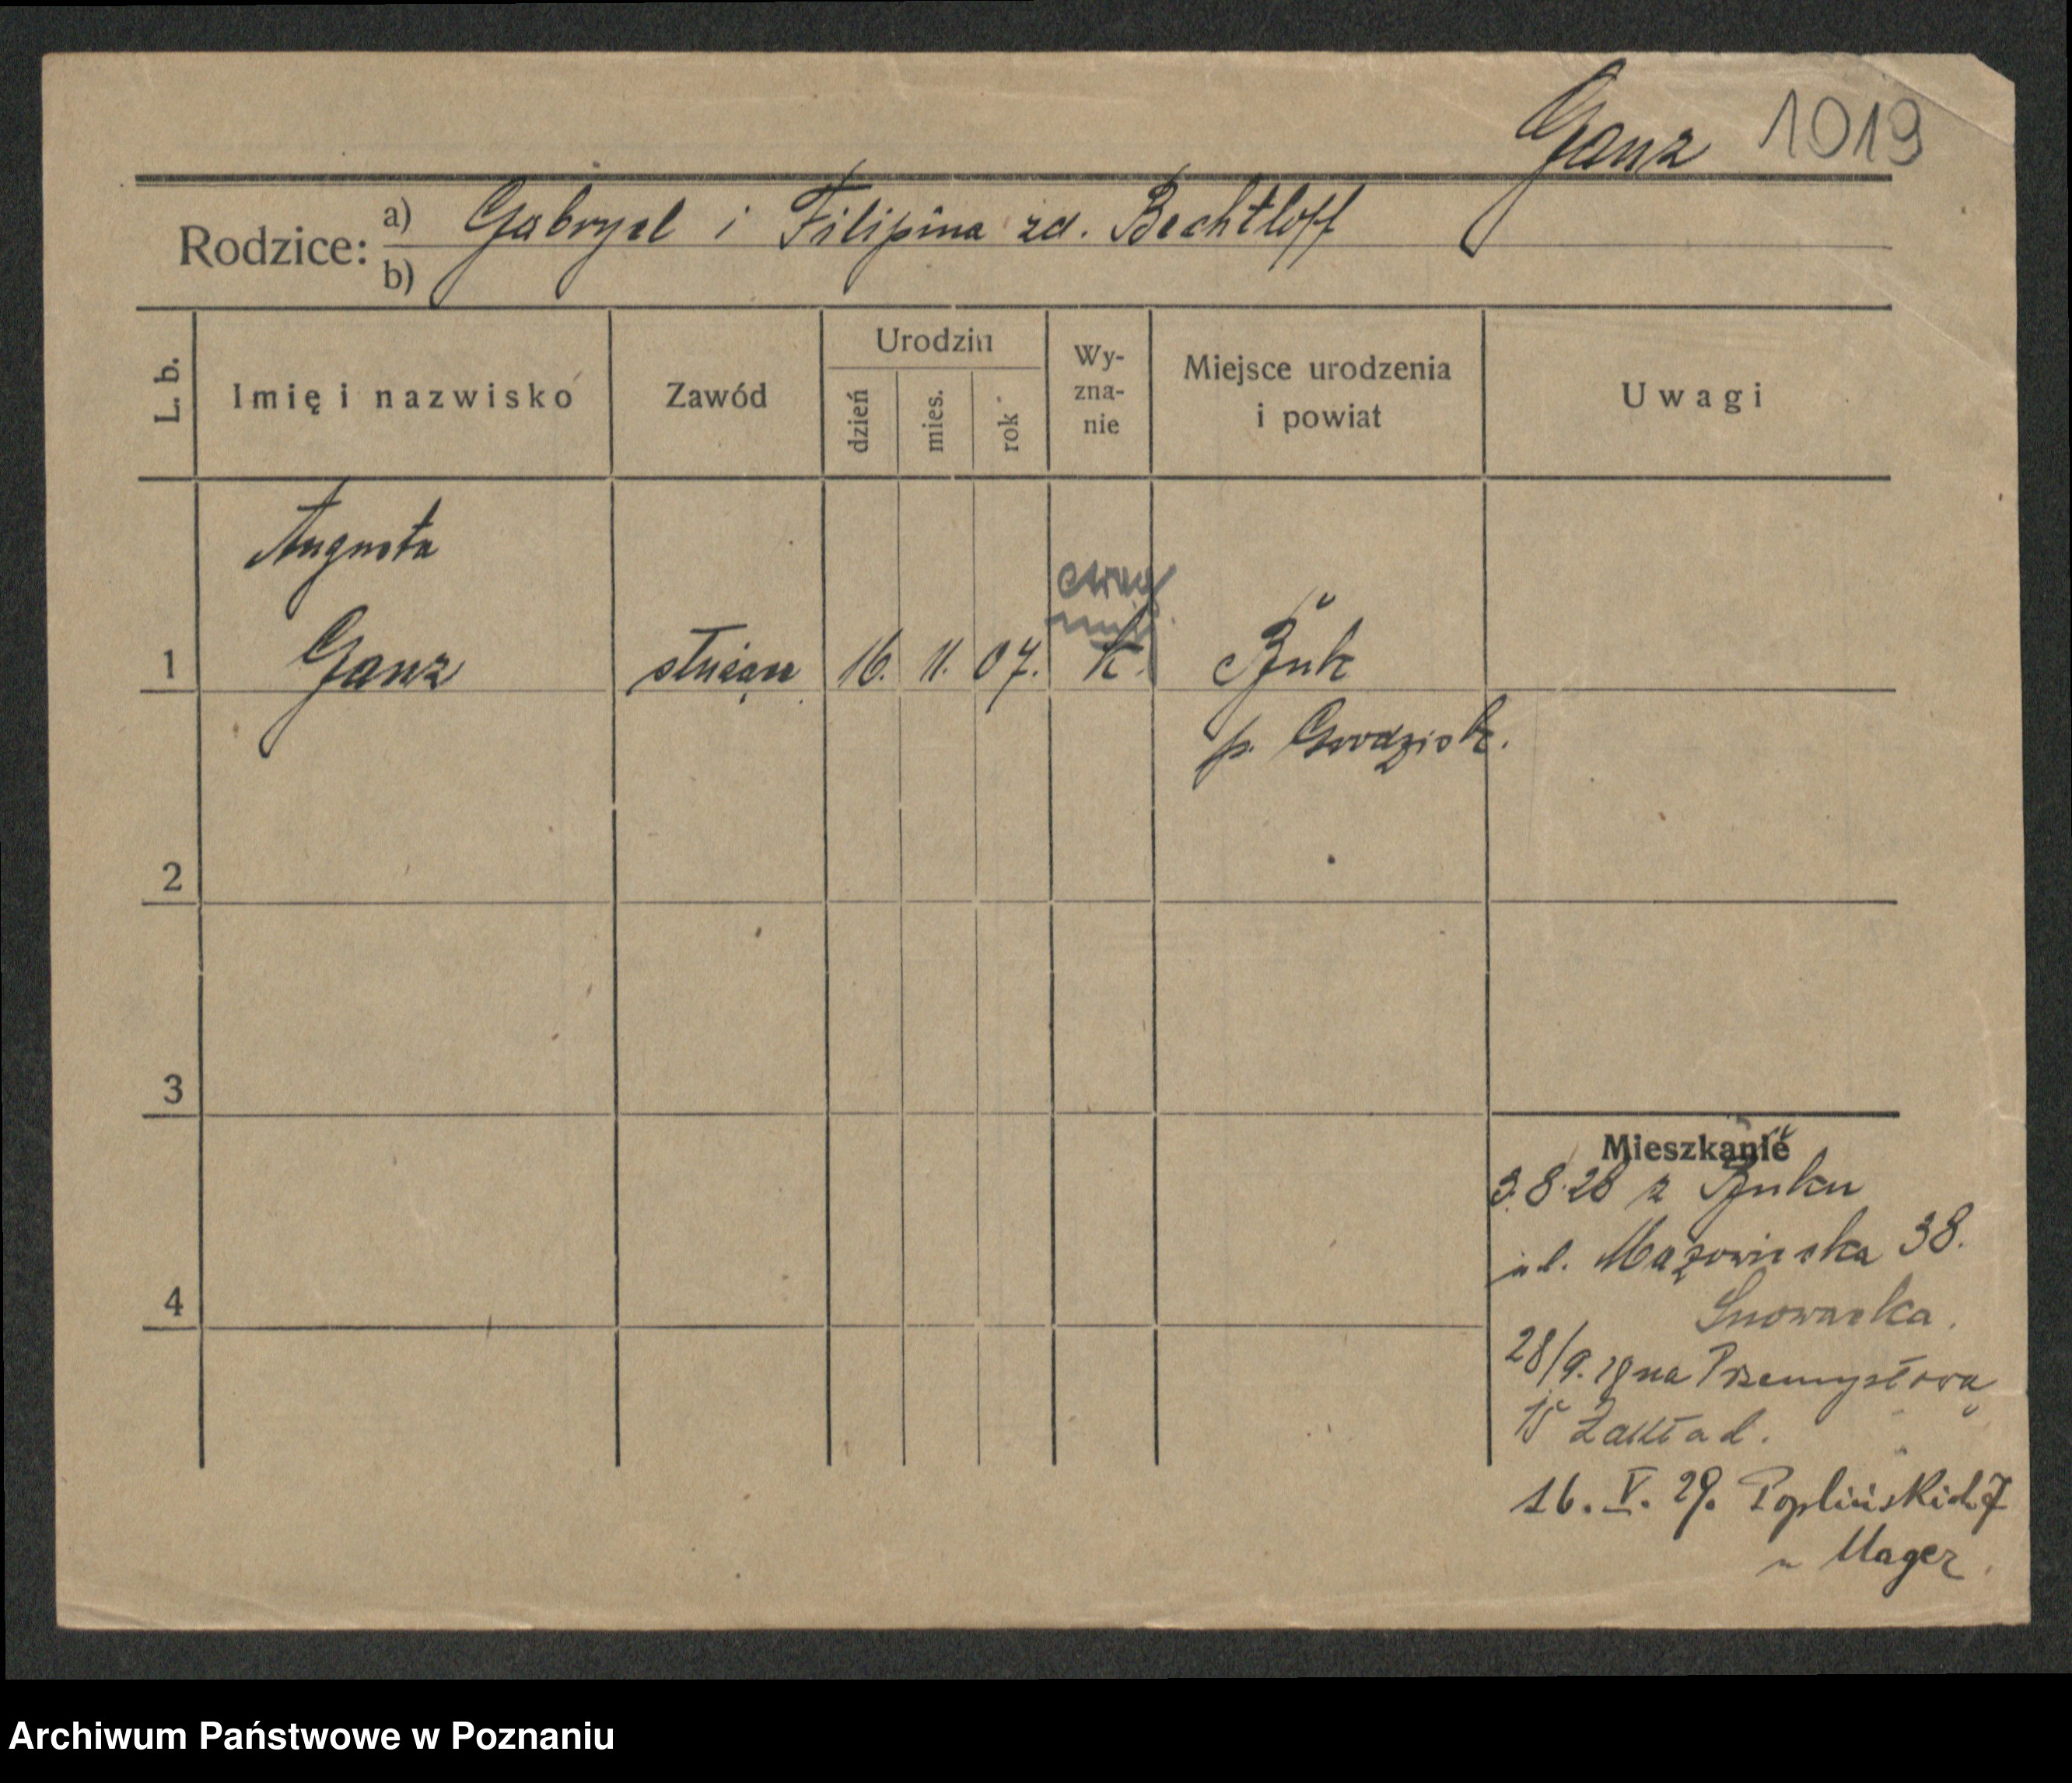 Ganz 1019
Rodzice: a) Gabryel i Filipina zd. Bechtloff
b)
L. b.
Imię i nazwisko
Zawód
Urodzin
dzień
mies.
rok
Wy-
zna-
nie
Miejsce urodzenia
i powiat
Uwagi
Augusta
ewag
1 Ganz służąc 16. 11. 07. k. Buk
p. Grodzisk.
2
3
4
Mieszkanie
3.8.28 z Buku
ul. Mazowiecka 38.
28/9. 28 na Przemysłową
15 Zakład.
16. V. 29. Poplińskich 7
u Mager
Archiwum Państwowe w Poznaniu